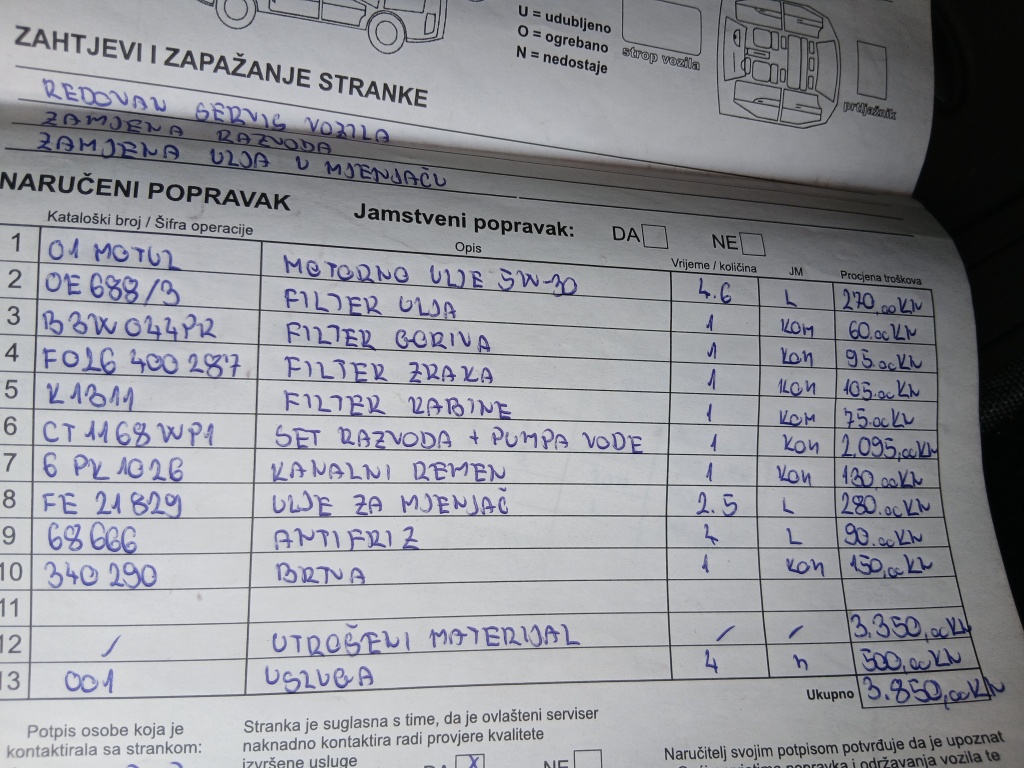 U = udubljeno
O = ogrebano
N = nedostaje
strop vozila
prtljažnik
ZAHTJEVI I ZAPAŽANJE STRANKE
REDOVAN SERVIS VOZILA
ZAMJENA RAZVODA
ZAMJENA ULJA U MJENJAČU
NARUČENI POPRAVAK Jamstveni popravak: DA NE
Kataloški broj / Šifra operacije Opis Vrijeme / količina JM Procjena troškova
1 01 MOTUL MOTORNO ULJE 5W-30 4.6 L 270,00KN
2 OE 688/3 FILTER ULJA 1 KOM 60.00KN
3 B3W044PR FILTER GORIVA 1 KOM 95.00KN
4 F026 400 287 FILTER ZRAKA 1 KOM 105.00KN
5 K1311 FILTER KABINE 1 KOM 75.00KN
6 CT1168WP1 SET RAZVODA + PUMPA VODE 1 KOM 2.095,00KN
7 6 PK 1026 KANALNI REMEN 1 KOM 130.00KN
8 FE 21829 ULJE ZA MJENJAČ 2.5 L 280.00KN
9 68666 ANTIFRIZ L 90.00KN
10 340 290 BRTVA 1 KOM 150,00KN
11
12 / UTROŠENI MATERIJAL / / 3.350,00KN
13 001 USLUGA 4 h 500,00KN
Ukupno 3.850,00KN
Potpis osobe koja je
kontaktirala sa strankom:
Stranka je suglasna s time, da je ovlašteni serviser
naknadno kontaktira radi provjere kvalitete
izvršene usluge DA X NE
Naručitelj svojim potpisom potvrđuje da je upoznat
popravka i održavanja vozila te